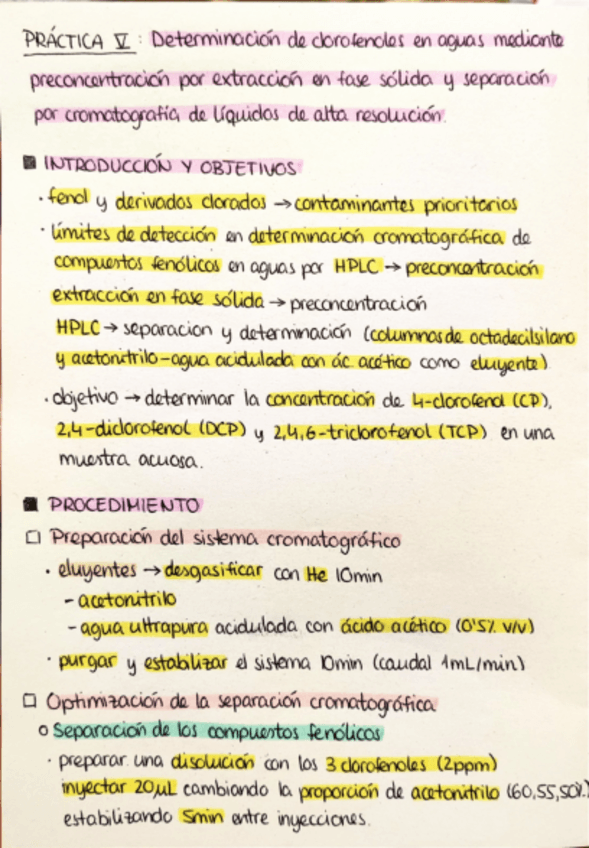 PRÁCTICA V: Determinación de clorofenoles en aguas mediante
preconcentración por extracción en fase sólida y separación
por cromatografía de líquidos de alta resolución.
■ INTRODUCCIÓN Y OBJETIVOS
· fenol y derivados clorados → contaminantes prioritarios
· límites de detección en determinación cromatográfica de
compuestos fenólicos en aguas por HPLC → preconcentración
extracción en fase sólida → preconcentración
HPLC → separacion y determinación (columnas de octadecilsilano
y acetonitrilo-agua acidulada con ác. acético como eluyente)
· objetivo → determinar la concentración de 4-clorofenol (CP),
2,4-diclorofenol (DCP) y 2,4,6-triclorofenol (TCP) en una
muestra acuosa.
■ PROCEDIMIENTO
□ Preparación del sistema cromatográfico
· eluyentes → desgasificar con He 10min
- acetonitrilo
- agua ultrapura acidulada con ácido acético (0'5% v/v)
· purgar y estabilizar el sistema 10min (caudal 1mL/min)
□ Optimización de la separación cromatográfica
o Separación de los compuestos fenólicos
· preparar una disolución con los 3 clorofenoles (2ppm)
inyectar 20µL cambiando la proporción de acetonitrilo (60,55,50%)
estabilizando 5min entre inyecciones.